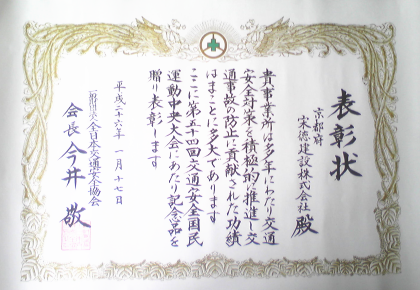 表彰状
京都府
宋徳建設株式会社 殿
貴事業所は多年にわたり交通
安全対策を積極的に推進し交
通事故防止に貢献された功績
はまことに多大であります
ここに第五十四回交通安全国民
運動中央大会にあたり記念品を
贈り表彰します
平成二十六年一月十七日
一般財団法人全日本交通安全協会
会長 今井 敬